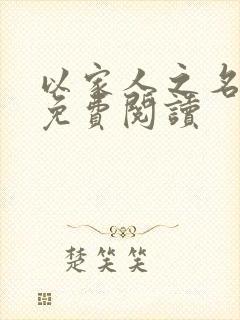 以家人之名
免費閱讀
楚笑笑